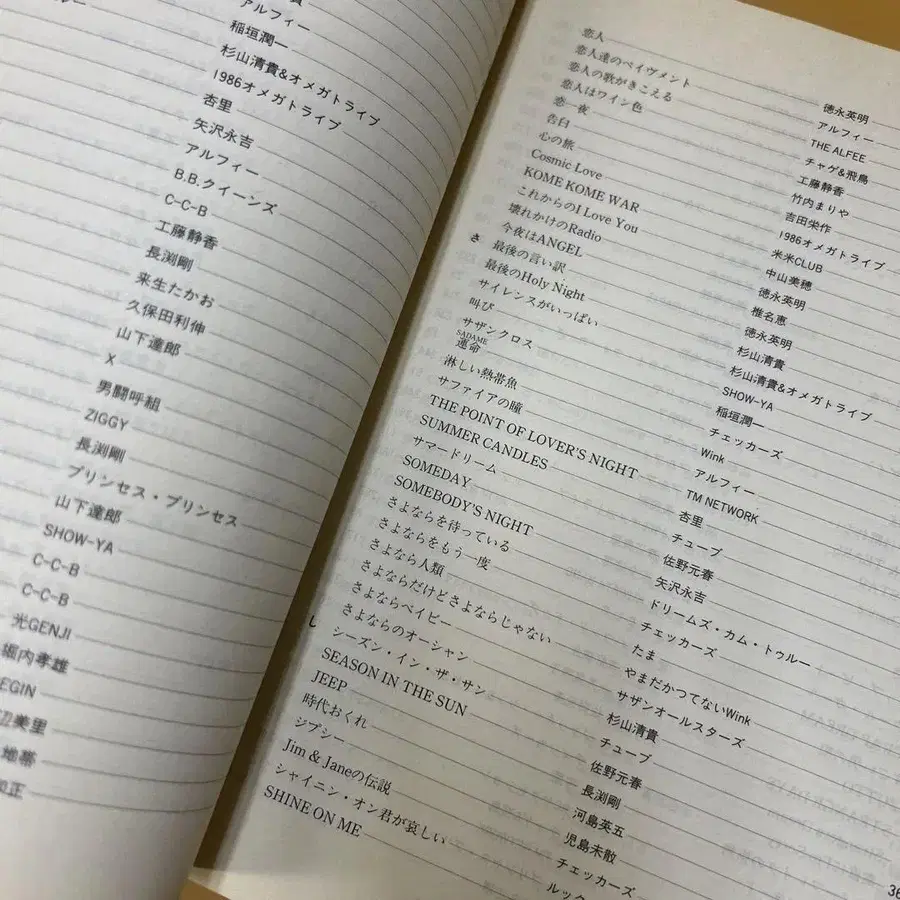 アルフィー
稲垣潤一
杉山清貴&オメガトライブ
1986オメガトライブ
杏里
矢沢永吉
アルフィー
B.B.クイーンズ
C-C-B
工藤静香
長渕剛
来生たかお
久保田利伸
山下達郎
X
男闘呼組
ZIGGY
長渕剛
プリンセス・プリンセス
山下達郎
SHOW-YA
C-C-B
C-C-B
光GENJI
堀内孝雄
EGIN
辺美里
地帯
和正
恋人 徳永英明
恋人達のペイヴメント アルフィー
恋人の歌がきこえる THE ALFEE
恋人はワイン色 チャゲ&飛鳥
恋一夜 工藤静香
告白 竹内まりや
心の旅 吉田栄作
Cosmic Love 1986オメガトライブ
KOME KOME WAR 米米CLUB
これからのI Love You 中山美穂
壊れかけのRadio 徳永英明
今夜はANGEL 椎名恵
さ 最後の言い訳 徳永英明
最後のHoly Night 杉山清貴
サイレンスがいっぱい 杉山清貴&オメガトライブ
叫び SHOW-YA
サザンクロス 稲垣潤一
SADAME
運命 チェッカーズ
淋しい熱帯魚 Wink
サファイアの瞳 アルフィー
THE POINT OF LOVER'S NIGHT TM NETWORK
SUMMER CANDLES 杏里
サマードリーム チューブ
SOMEDAY 佐野元春
SOMEBODY'S NIGHT 矢沢永吉
さよならを待っている ドリームズ・カム・トゥルー
さよならをもう一度 チェッカーズ
さよなら人類 たま
さよならだけどさよならじゃない やまだかつてないWink
さよならベイビー サザンオールスターズ
さよならのオーシャン 杉山清貴
し シーズン・イン・ザ・サン チューブ
SEASON IN THE SUN 佐野元春
JEEP 長渕剛
時代おくれ 河島英五
ジプシー 児島未散
Jim & Janeの伝説 チェッカーズ
シャイニン・オン君が哀しい ルック
SHINE ON ME
36